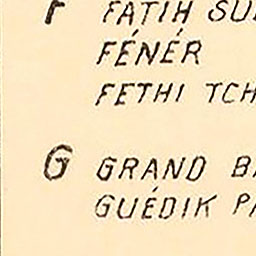 F FATIH SU
FÉNÉR
FETHI TCH
G GRAND B
GUÉDIK P